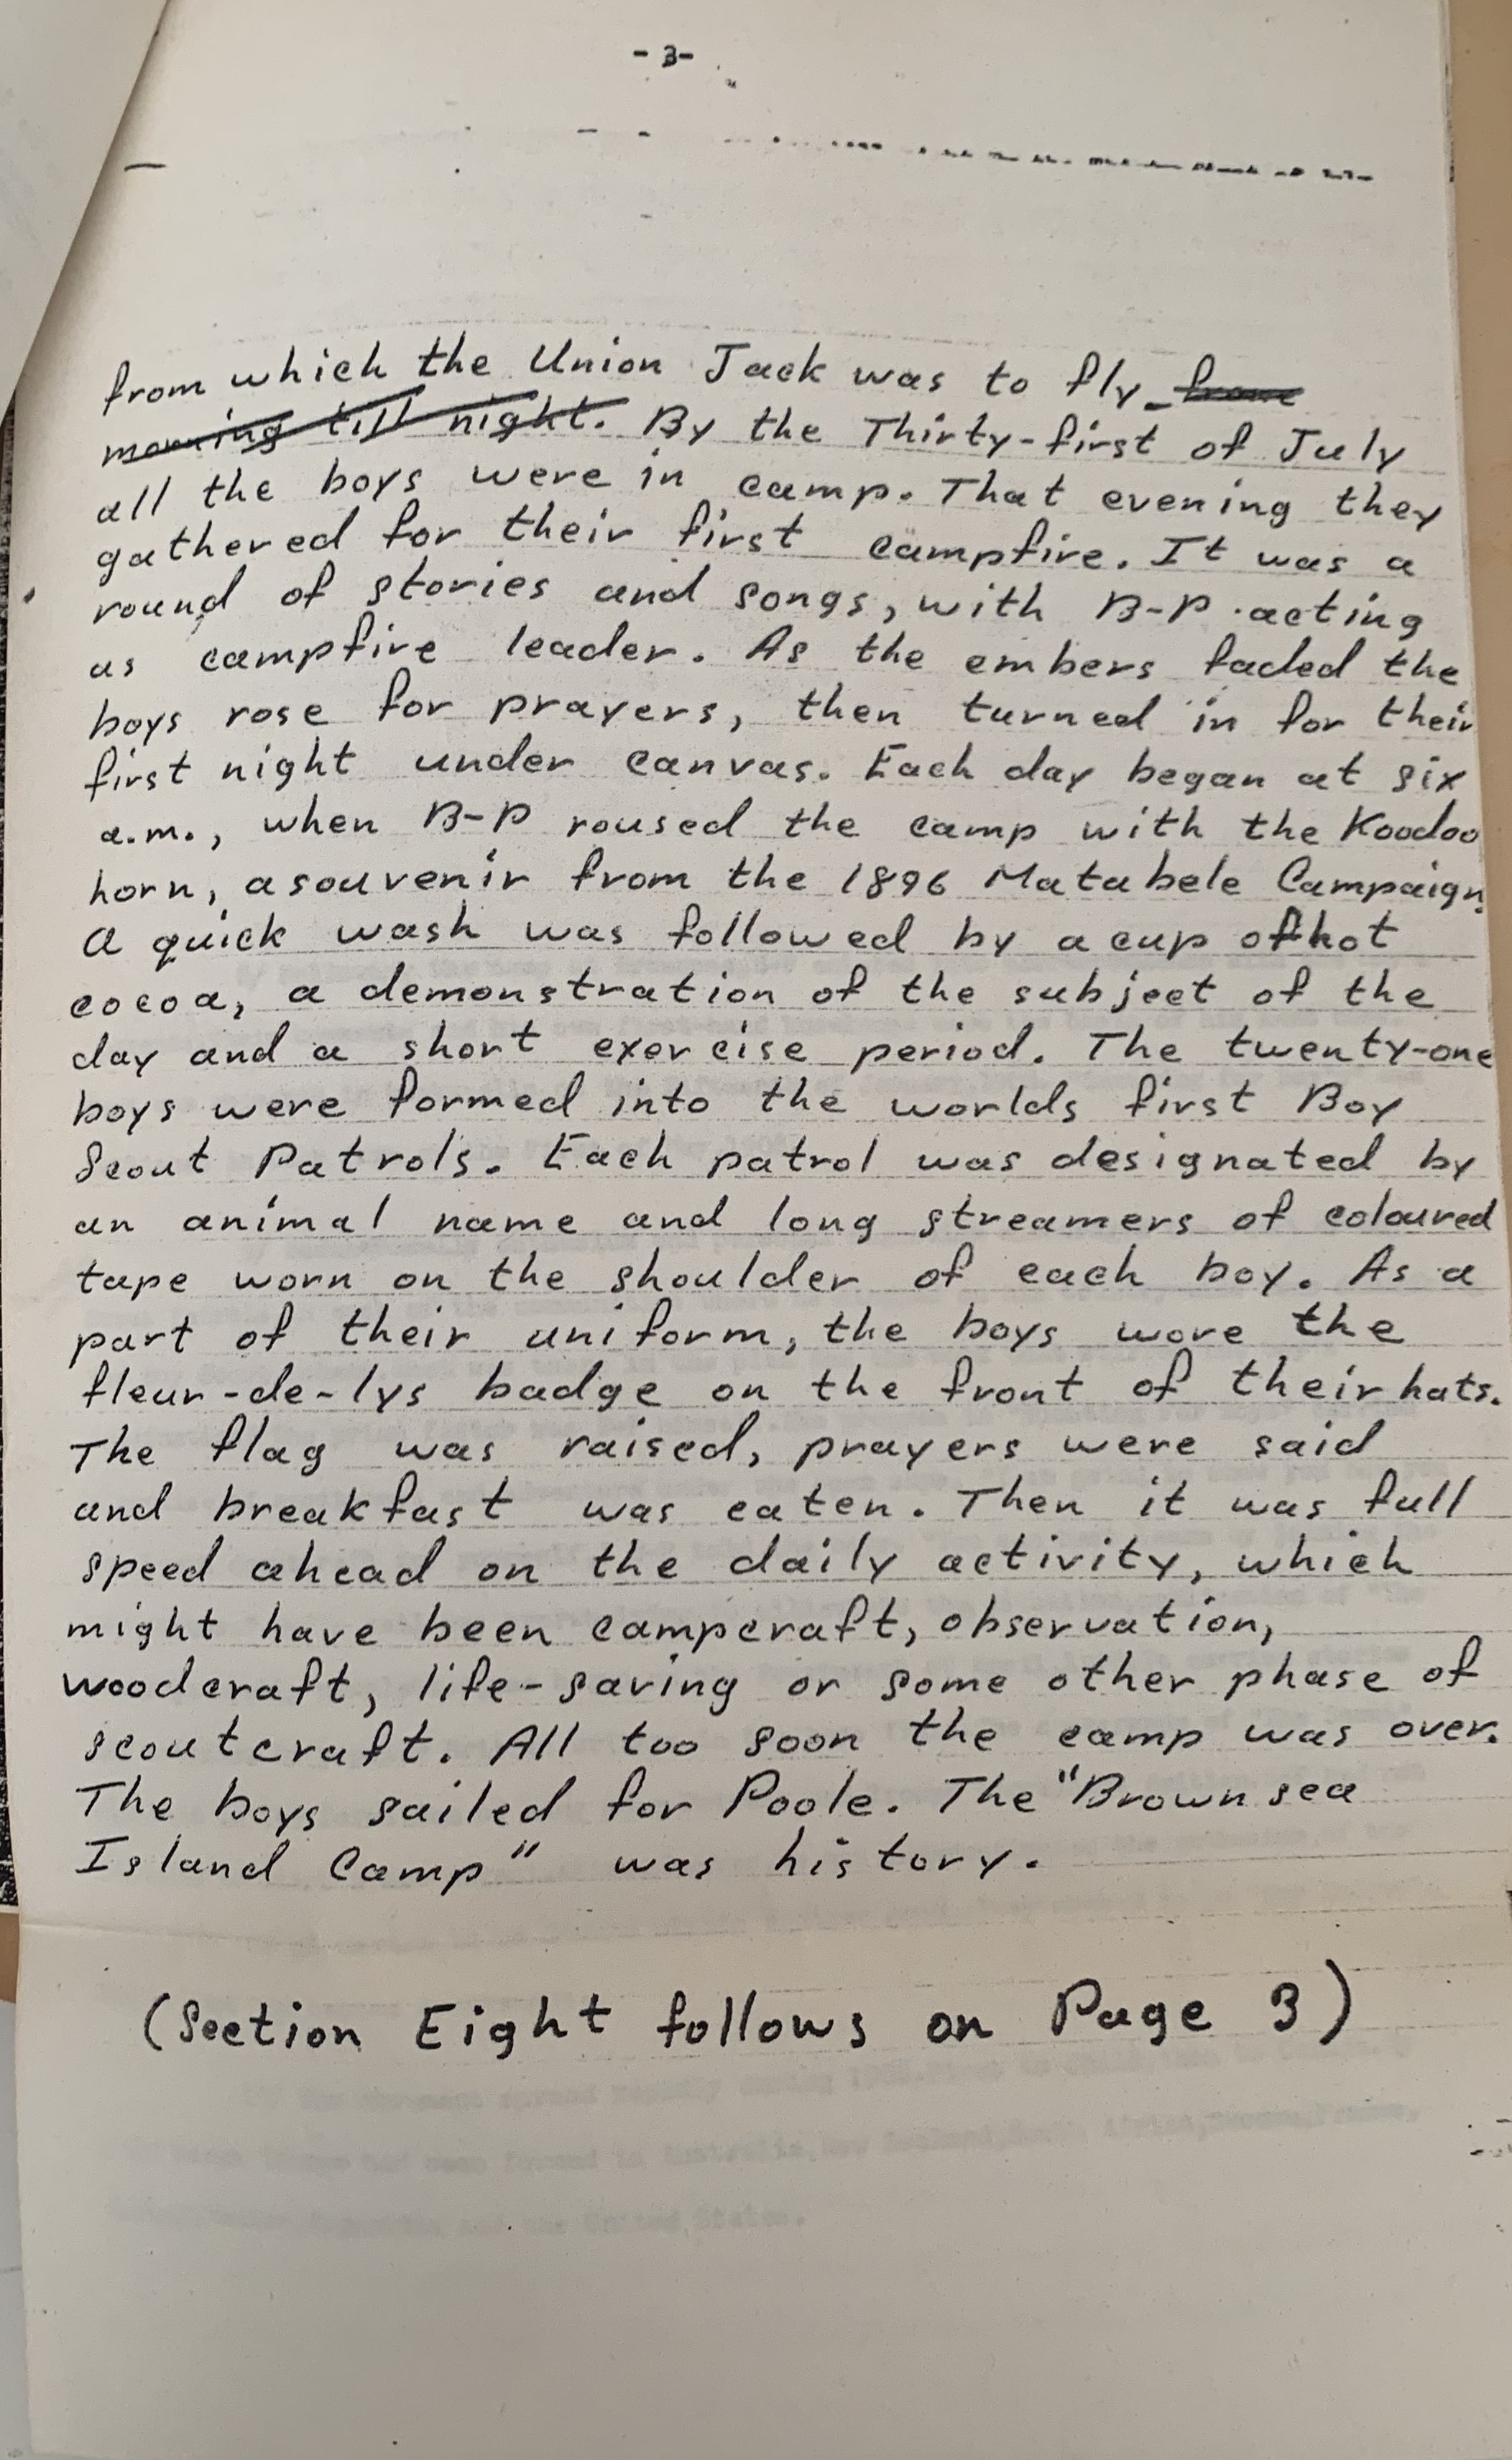 -3-
from which the Union Jack was to fly. from
morning till night. By the Thirty-first of July
all the boys were in camp. That evening they
gathered for their first campfire. It was a
round of stories and songs, with B-P acting
as campfire leader. As the embers faded the
boys rose for prayers, then turned in for their
first night under canvas. Each day began at six
a.m., when B-P roused the camp with the Koodoo
horn, a souvenir from the 1896 Matabele Campaign.
A quick wash was followed by a cup of hot
cocoa, a demonstration of the subject of the
day and a short exercise period. The twenty-one
boys were formed into the worlds first Boy
Scout Patrols. Each patrol was designated by
an animal name and long streamers of coloured
tape worn on the shoulder of each boy. As a
part of their uniform, the boys wore the
fleur-de-lys badge on the front of their hats.
The flag was raised, prayers were said
and breakfast was eaten. Then it was full
speed ahead on the daily activity, which
might have been campcraft, observation,
woodcraft, life-saving or some other phase of
scoutcraft. All too soon the camp was over.
The boys sailed for Poole. The "Brownsea
Island Camp" was history.
(Section Eight follows on Page 3)